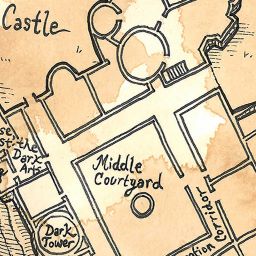 Castle
the
Dark
Arts
Middle
Courtyard
Dark
Tower
Corridor